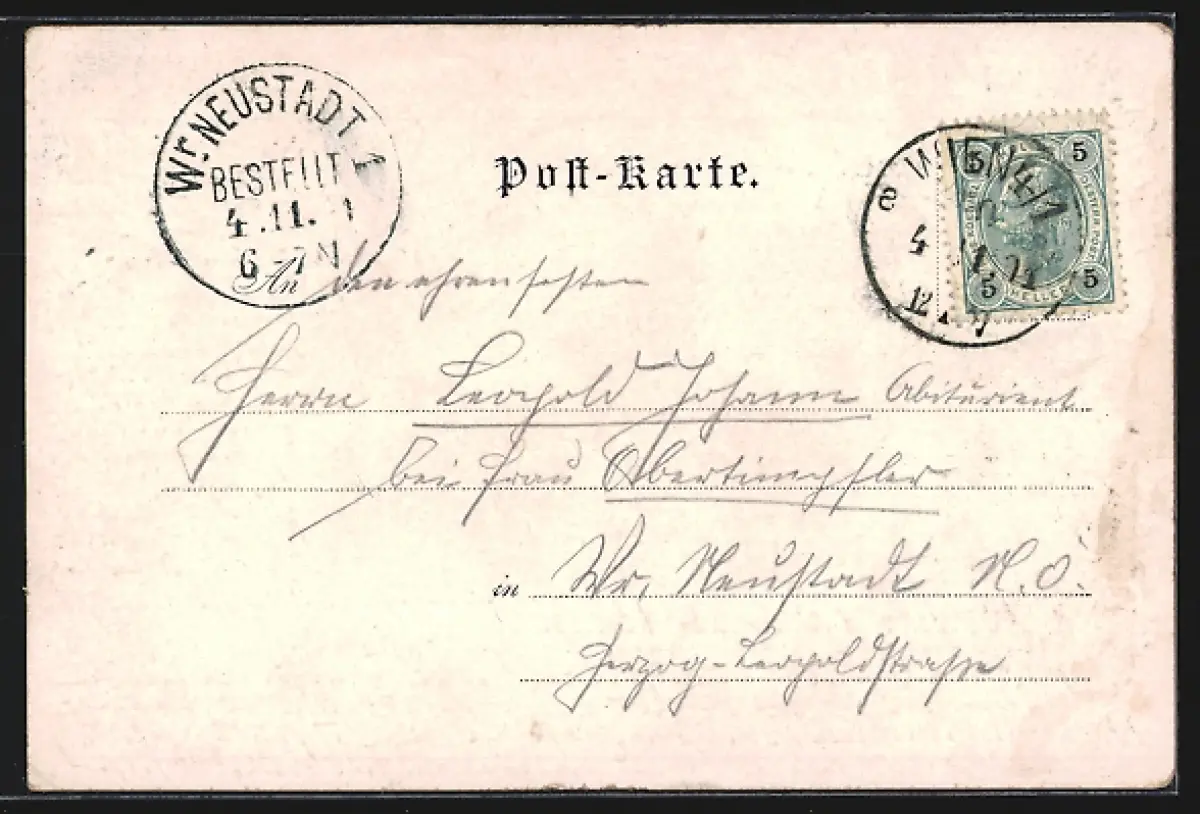 Wr. NEUSTADT 1
BESTELLT
4.11.
6-7 N
Post-Karte.
WIEN 4/1
4
12
5 5
5 5
HELLER
An den ehrenfesten
Herrn Leopold Johann Abiturient
bei Frau
in Wr. Neustadt N.Ö.
Herzog-Leopoldstrasse